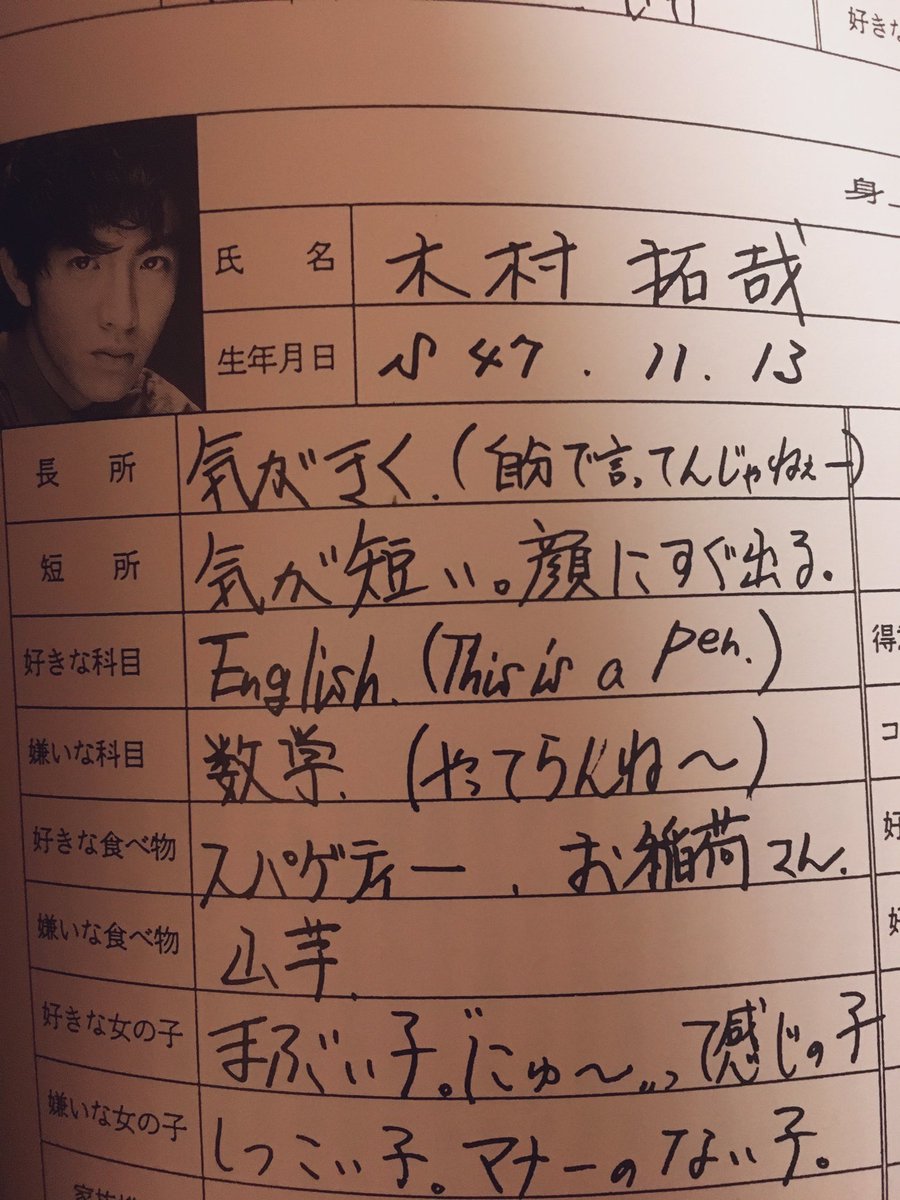 好きな
身
氏 名 木村 拓哉
生年月日 S 47. 11. 13
長 所 気がきく.(自分で言ってんじゃねぇー)
短 所 気が短い。顔にすぐ出る.
好きな科目 English. (This is a pen.)
嫌いな科目 数学. (やってらんね〜)
好きな食べ物 スパゲティー、お稲荷さん.
嫌いな食べ物 山芋.
好きな女の子 まぶい子。"にゅ〜"って感じの子
嫌いな女の子 しつこい子。マナーのない子。
得意
コ
好
好